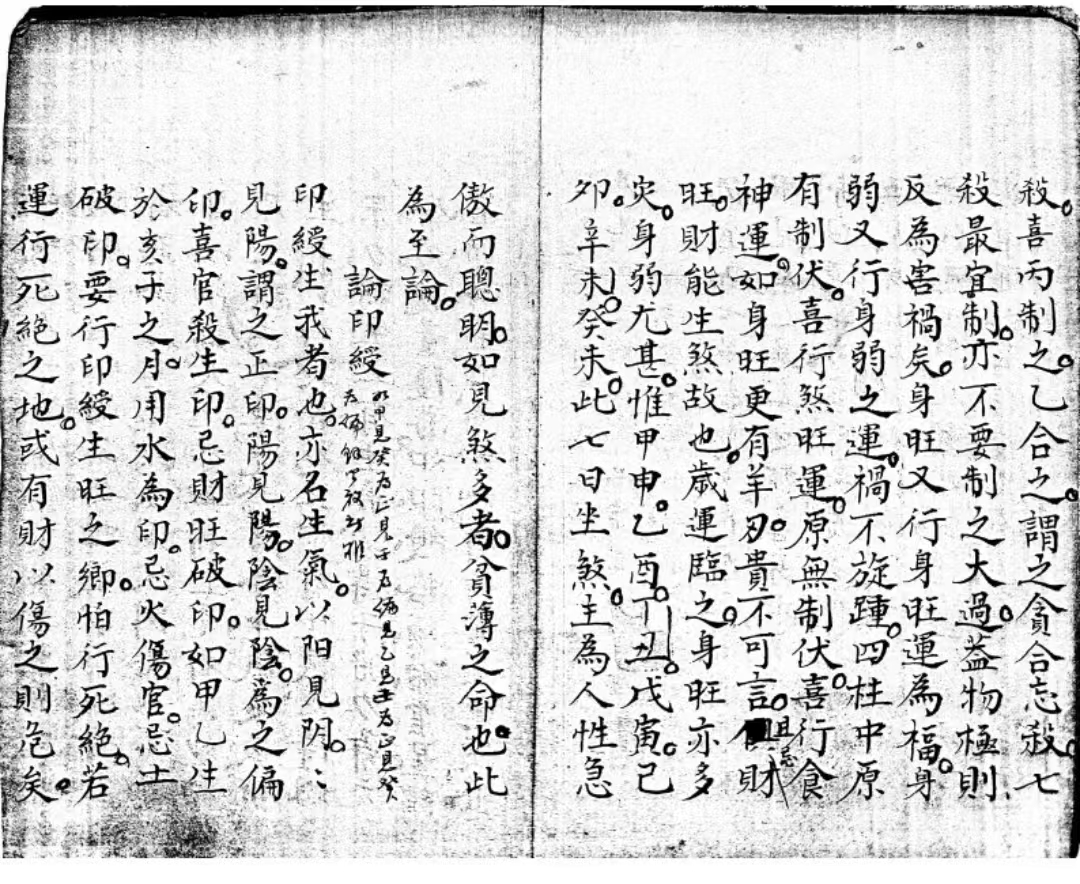 殺。喜丙制之。乙合之。謂之貪合忘殺。七
殺最宜制。亦不要制之大過。蓋物極則
反為害禍矣。身旺又行身旺運為福。身
弱又行身弱之運。禍不旋踵。四柱中原
有制伏。喜行煞旺運。原無制伏。喜行食
神運。如身旺更有羊刃。貴不可言。且忌財
旺。財能生煞故也。歲運臨之。身旺亦多
災。身弱尤甚。惟甲申。乙酉。丁丑。戊寅。己
卯。辛未。癸未。此七日坐煞。主為人性急
傲而聰明。如見煞多者。貧薄之命也。此
為至論。
論印綬 如甲見癸為正見子為偏見乙見壬為正見癸
為偏餘
印綬生我者也。亦名生氣。以阳見阴。:
見陽。謂之正印。陽見陽。陰見陰。為之偏
印。喜官殺生印。忌財旺破印。如甲乙生
於亥子之月。用水為印。忌火傷官。忌土
破印。要行印綬生旺之鄉。怕行死絕。若
運行死絕之地。或有財以傷之則危矣。